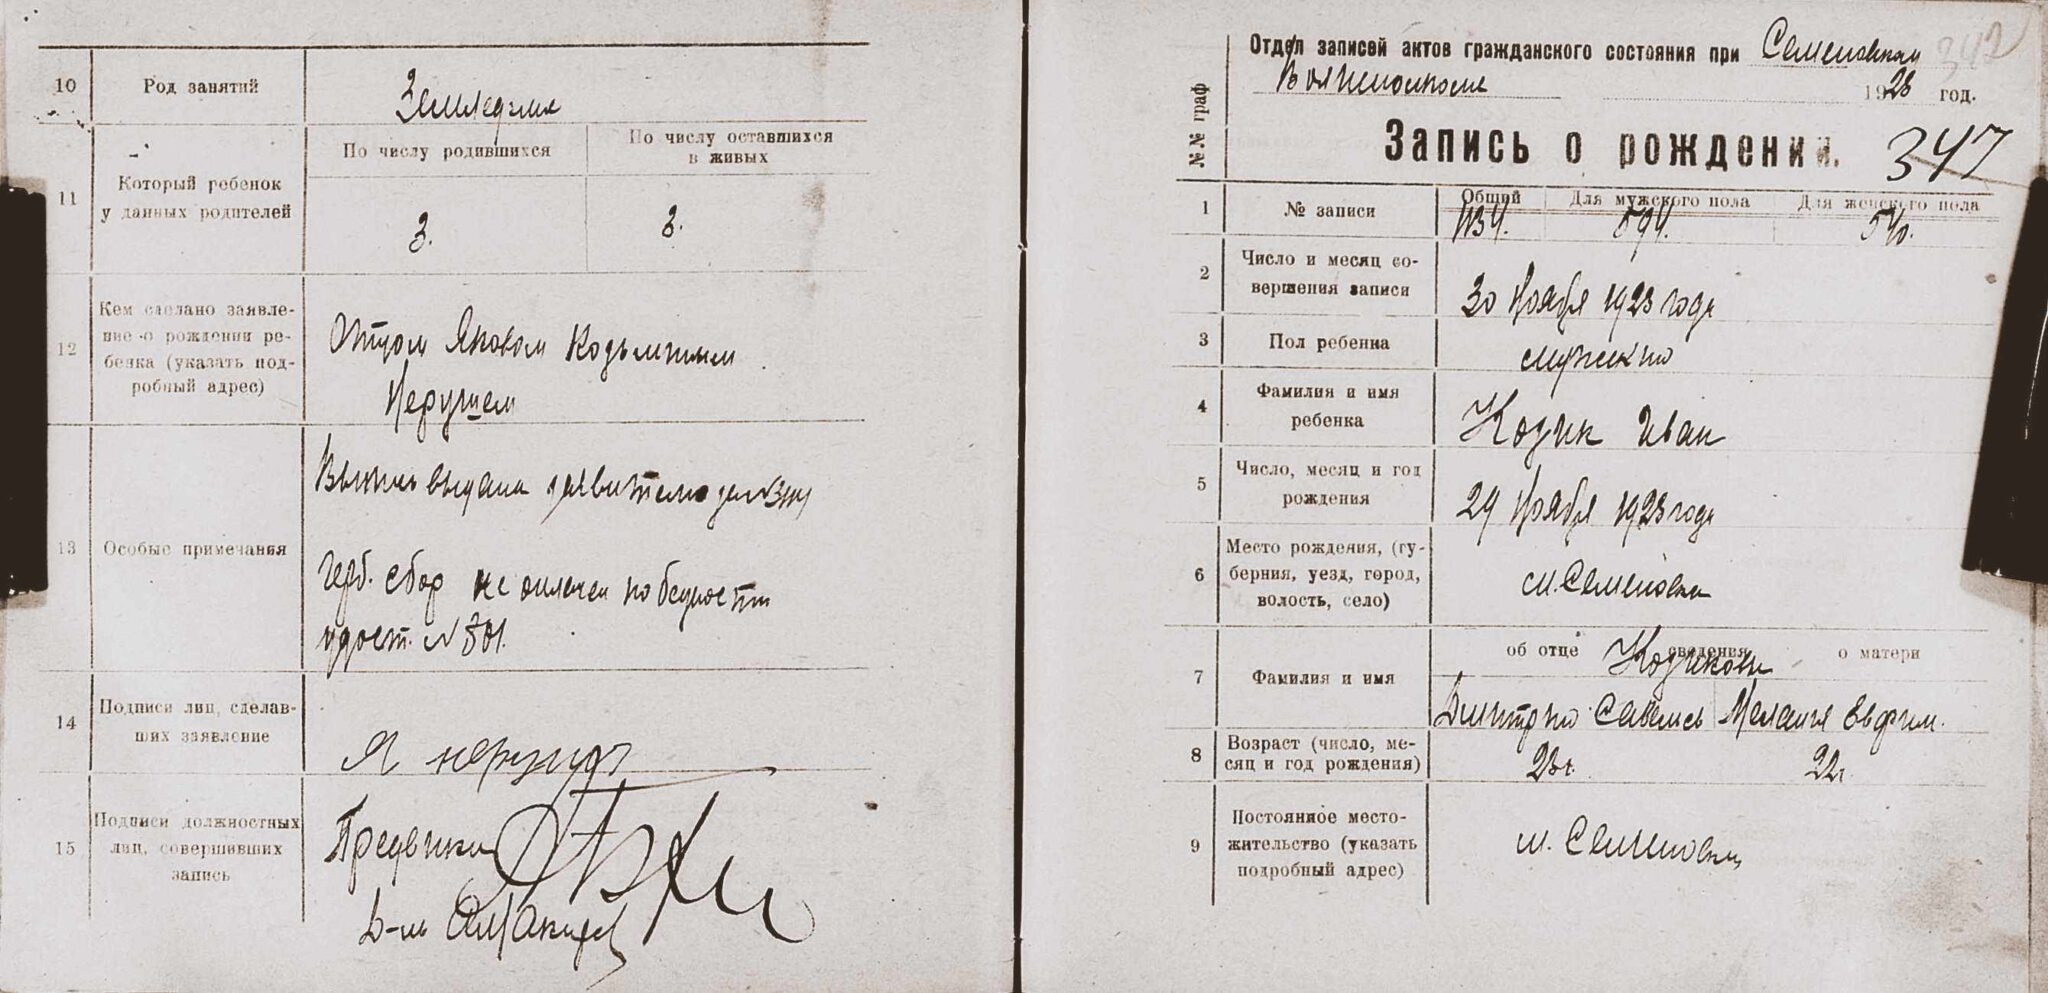 10 Род занятий Земледелие
11 Который ребенок у данных родителей
По числу родившихся
По числу оставшихся
в живых
3. 3.
12 Кем сделано заявле-
ние о рождении ре-
бенка (указать под-
робный адрес)
Отцом Яковом Козьминым
13 Особые примечания
Выпись выдана заявителю за №
Герб. сбор не оплачен по бедности
удост. № 301.
14 Подписи лиц, сделав-
ших заявление
Я
15 Подписи должностных
лиц, совершивших
запись
342
Отдел записей актов гражданского состояния при Семеновском
Волисполкоме 1923 год.
№№ граф
Запись о рождении. 347
1 № записи
Общий Для мужского пола Для женского пола
1134. 594. 540.
2 Число и месяц со-
вершения записи
30 Ноября 1923 года
3 Пол ребенка мужского
4 Фамилия и имя
ребенка
Козик Иван
5 Число, месяц и год
рождения
29 Ноября 1923 года
6 Место рождения, (гу-
берния, уезд, город,
волость, село)
м. Семеновка
об отце сведения о матери
Козикови
7 Фамилия и имя
Дмитрий Савельев Мелания Евфим.
8 Возраст (число, ме-
сяц и год рождения)
23г. 22г.
9 Постоянное место-
жительство (указать
подробный адрес)
м. Семеновка